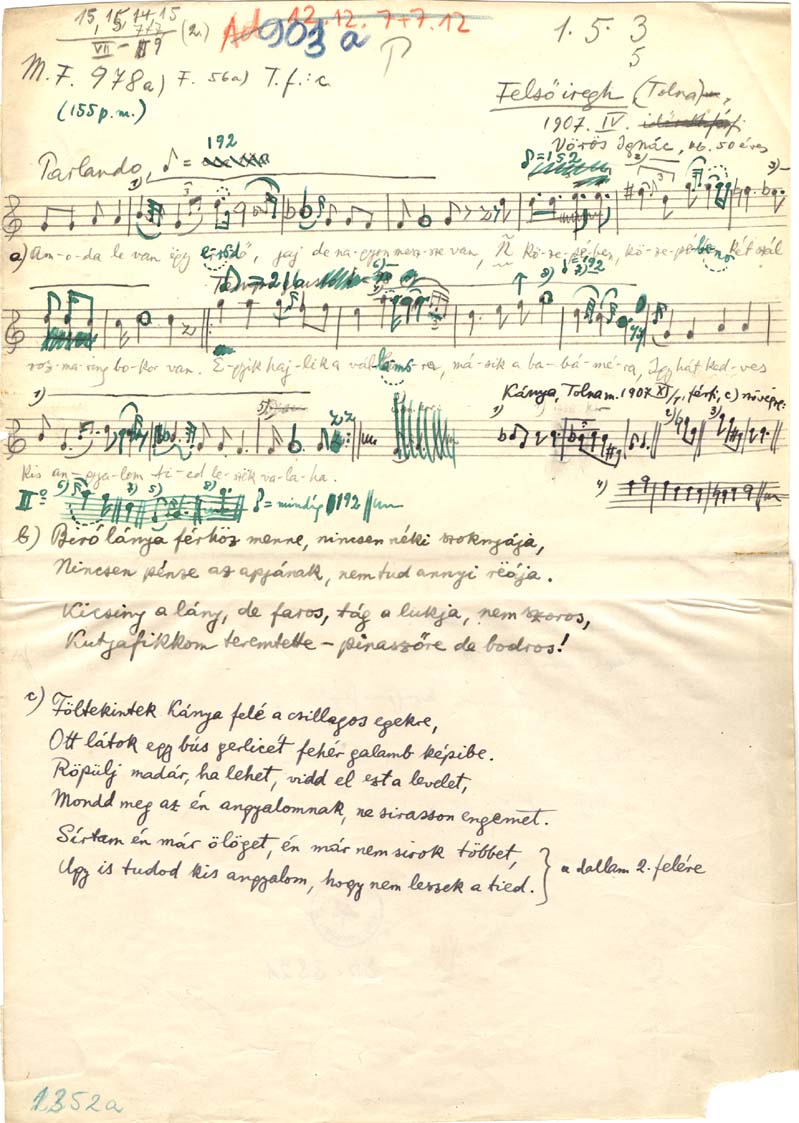 15, 15, 14, 15
VII – 9 (2.)
Ad 12. 12. 7+7. 12
903 a
P
1. 5. 3
5
M. F. 978a) F. 56a) T. f.: c.
(155 p.m.)
Felsőiregh (Tolna),
1907. IV.
Vörös Ignác, kb. 50 éves
Parlando, ♪ = 192
♪=152
a) Am-o-da le van egy erdő, jaj de na-gyon mesz-sze van, Kö-ze-pé-ben, kö-ze-pé-be két szál
♪=192
roz-ma-ring bo-kor van. E-gyik haj-lik a vál-lam-ra, má-sik a ba-bá-mé-ra, Igy hát ked-ves
Kánya, Tolnam. 1907 XI
kis an-gya-lom ti-ed le-szek va-la-ha.
IIo ♪ = mindig 192
b) Biró lánya férhöz menne, nincsen néki szoknyája,
Nincsen pénze az apjának, nem tud annyi reája.
Kicsiny a lány, de faros, tág a lukja, nem szoros,
Kutyafikkom teremtette – pinaszőre de bodros!
c) Föltekintek Kánya felé a csillagos egekre,
Ott látok egy bús gerlicét fehér galamb képibe.
Röpülj madár, ha lehet, vidd el ezt a levelet,
Mondd meg az én angyalomnak, ne sirasson engemet.
Sírtam én már ölöget, én már nem sirok többet,
Ugy is tudod kis angyalom, hogy nem leszek a tied.
a dallam 2. felére
1352a